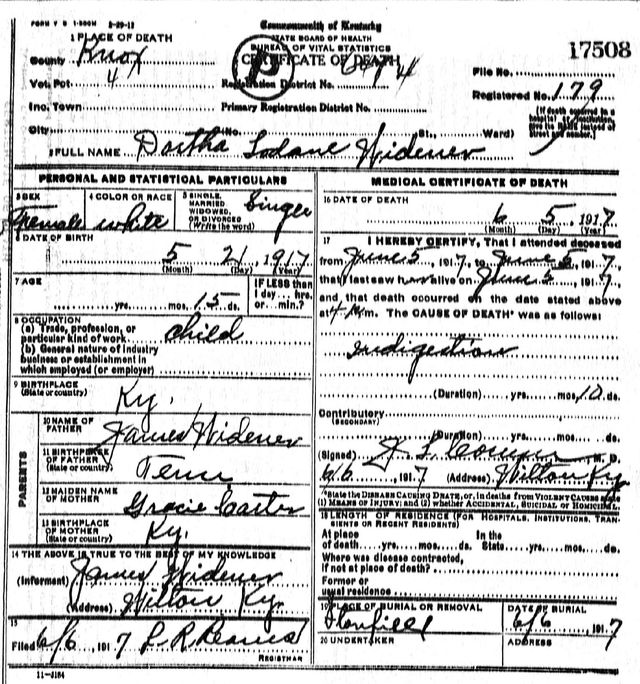 FORM V S 1-500M 2-29-12
Commonwealth of Kentucky
1 PLACE OF DEATH
STATE BOARD OF HEALTH
BUREAU OF VITAL STATISTICS
County Knox
CERTIFICATE OF DEATH
17508
File No.
Vot. Pct 4
Registration District No.
Registered No. 179
Inc. Town
Primary Registration District No.
[If death occurred in a hospital or institution, give its NAME instead of street and number.]
City (No. St., Ward)
2 FULL NAME Dortha Widener
PERSONAL AND STATISTICAL PARTICULARS
3 SEX Female
4 COLOR OR RACE white
5 SINGLE, MARRIED, WIDOWED, OR DIVORCED (Write the word) Single
6 DATE OF BIRTH
5 21, 1917
(Month) (Day) (Year)
7 AGE
yrs. mos. 15 ds.
IF LESS than 1 day... hrs. or... min.?
8 OCCUPATION
(a) Trade, profession, or particular kind of work child
(b) General nature of industry
business or establishment in
which employed (or employer)
9 BIRTHPLACE
(State or country) Ky.
PARENTS
10 NAME OF FATHER James Widener
11 BIRTHPLACE OF FATHER (State or country) Tenn
12 MAIDEN NAME OF MOTHER Gracie Carter
13 BIRTHPLACE OF MOTHER (State or country) Ky.
14 THE ABOVE IS TRUE TO THE BEST OF MY KNOWLEDGE
(Informant) James Widener
(Address) Wilton Ky.
15
Filed 6/6, 1917
REGISTRAR
11-3184
MEDICAL CERTIFICATE OF DEATH
16 DATE OF DEATH
6 5, 1917
(Month) (Day) (Year)
17 I HEREBY CERTIFY, That I attended deceased
from June 5, 1917, to June 5, 1917,
that I last saw her alive on June 5 1917,
and that death occurred on the date stated above
at 4 m. The CAUSE OF DEATH* was as follows:
Indigestion
(Duration) yrs. mos. 10 ds.
Contributory
(SECONDARY)
(Duration) yrs. mos. ds.
(Signed) M. D.
6/6, 1917 (Address) Wilton Ky
*State the DISEASE CAUSING DEATH, or, in deaths from VIOLENT CAUSES state
(1) MEANS OF INJURY; and (2) whether ACCIDENTAL, SUICIDAL or HOMICIDAL.
18 LENGTH OF RESIDENCE (FOR HOSPITALS, INSTITUTIONS, TRANSIENTS OR RECENT RESIDENTS)
At place of death yrs. mos. ds. In the State yrs. mos. ds.
Where was disease contracted,
if not at place of death?
Former or
usual residence
19 PLACE OF BURIAL OR REMOVAL
DATE OF BURIAL
6/6, 1917
20 UNDERTAKER
ADDRESS